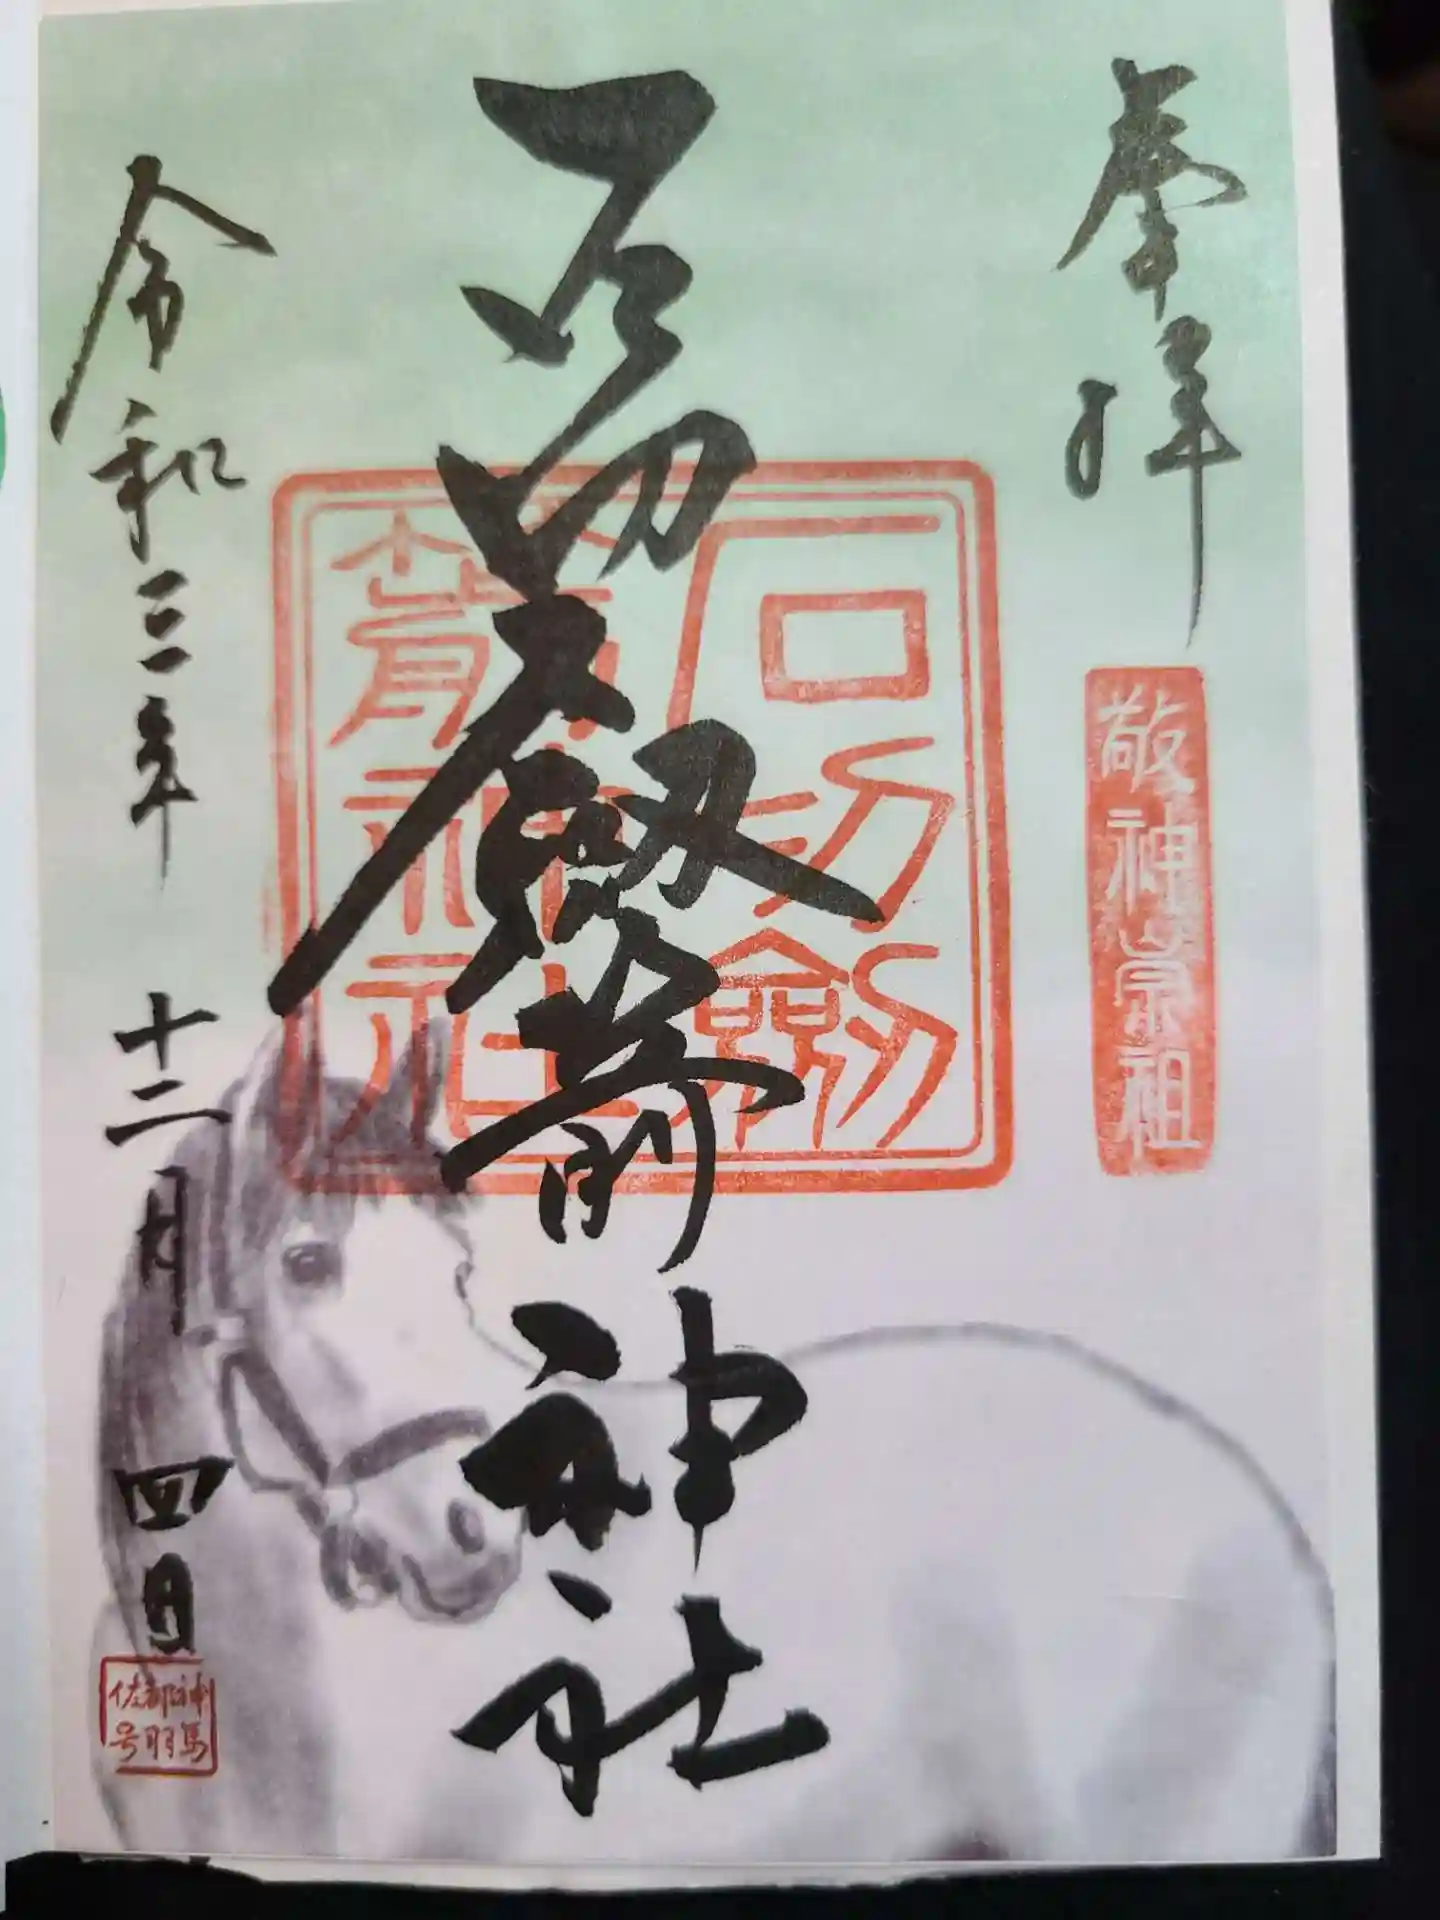 奉拝
敬神崇祖
石切劔箭神社
石切劔
箭神社
令和三年十二月四日
神馬
都羽
佐号